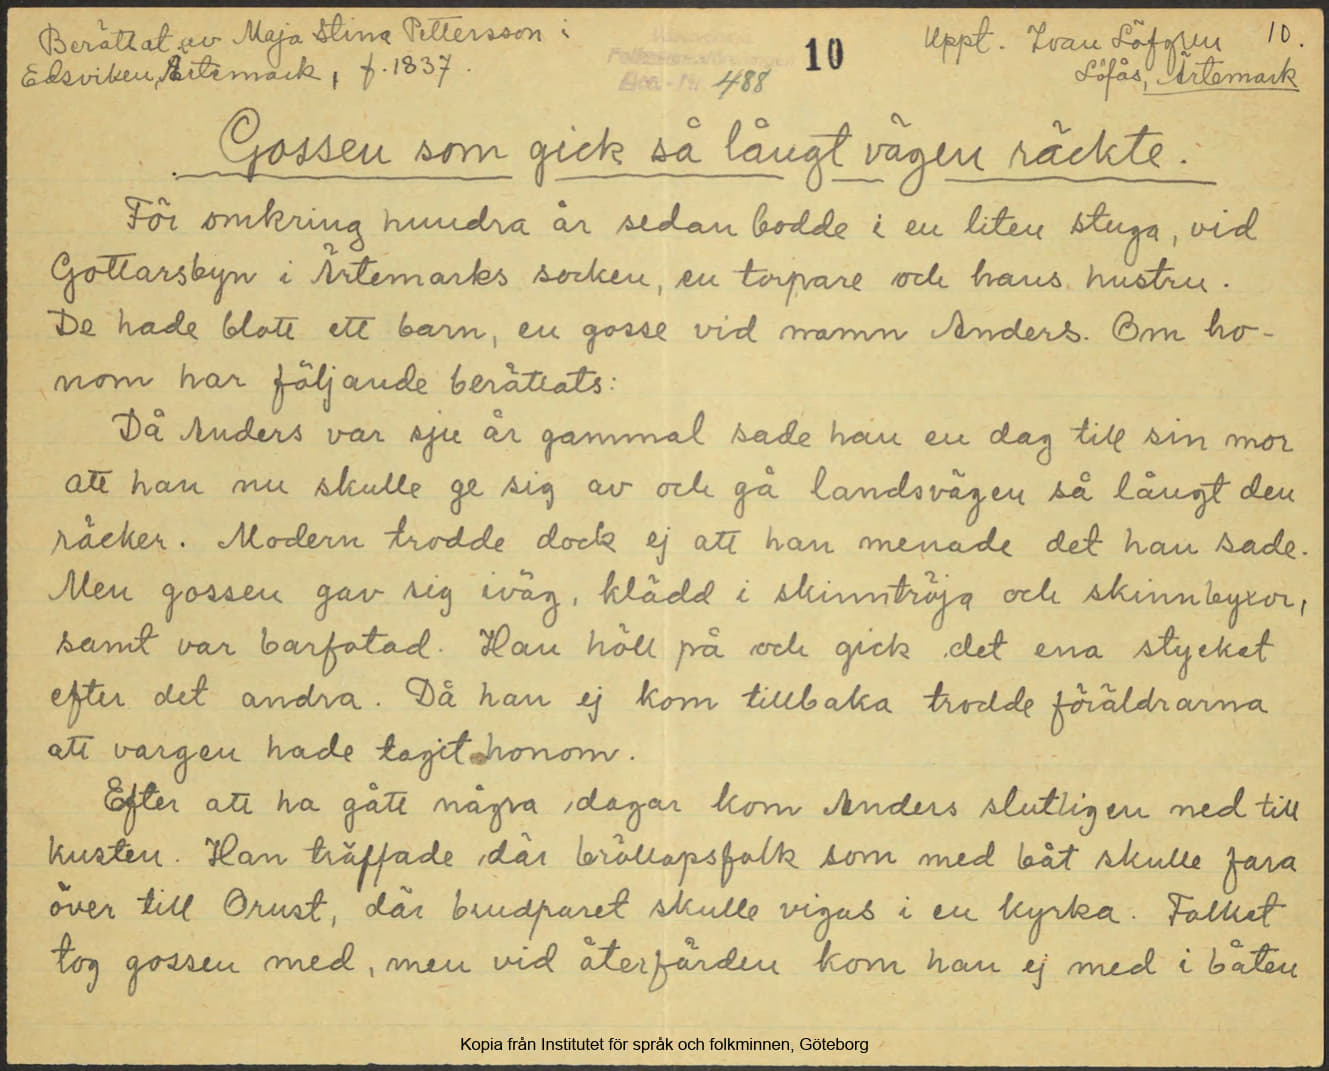 Berättat av Maja Stina Pettersson i
Edsviken, Ärtemark, f. 1837.
Acc.-Nr. 488
10
Uppt. Ivan Löfgren 10.
Löfås, Ärtemark
Gossen som gick så långt vägen räckte.
För omkring hundra år sedan bodde i en liten stuga, vid
Gottarsbyn i Ärtemarks socken, en torpare och hans hustru.
De hade blott ett barn, en gosse vid namn Anders. Om ho-
nom har följande berättats:
Då Anders var sju år gammal sade han en dag till sin mor
att han nu skulle ge sig av och gå landsvägen så långt den
räcker. Modern trodde dock ej att han menade det han sade.
Men gossen gav sig iväg, klädd i skinntröja och skinnbyxor,
samt var barfotad. Han höll på och gick det ena stycket
efter det andra. Då han ej kom tillbaka trodde föräldrarna
att vargen hade tagit honom.
Efter att ha gått några dagar kom Anders slutligen ned till
kusten. Han träffade där bröllopsfolk som med båt skulle fara
över till Orust, där brudparet skulle vigas i en kyrka. Folket
tog gossen med, men vid återfärden kom han ej med i båten
Kopia från Institutet för språk och folkminnen, Göteborg